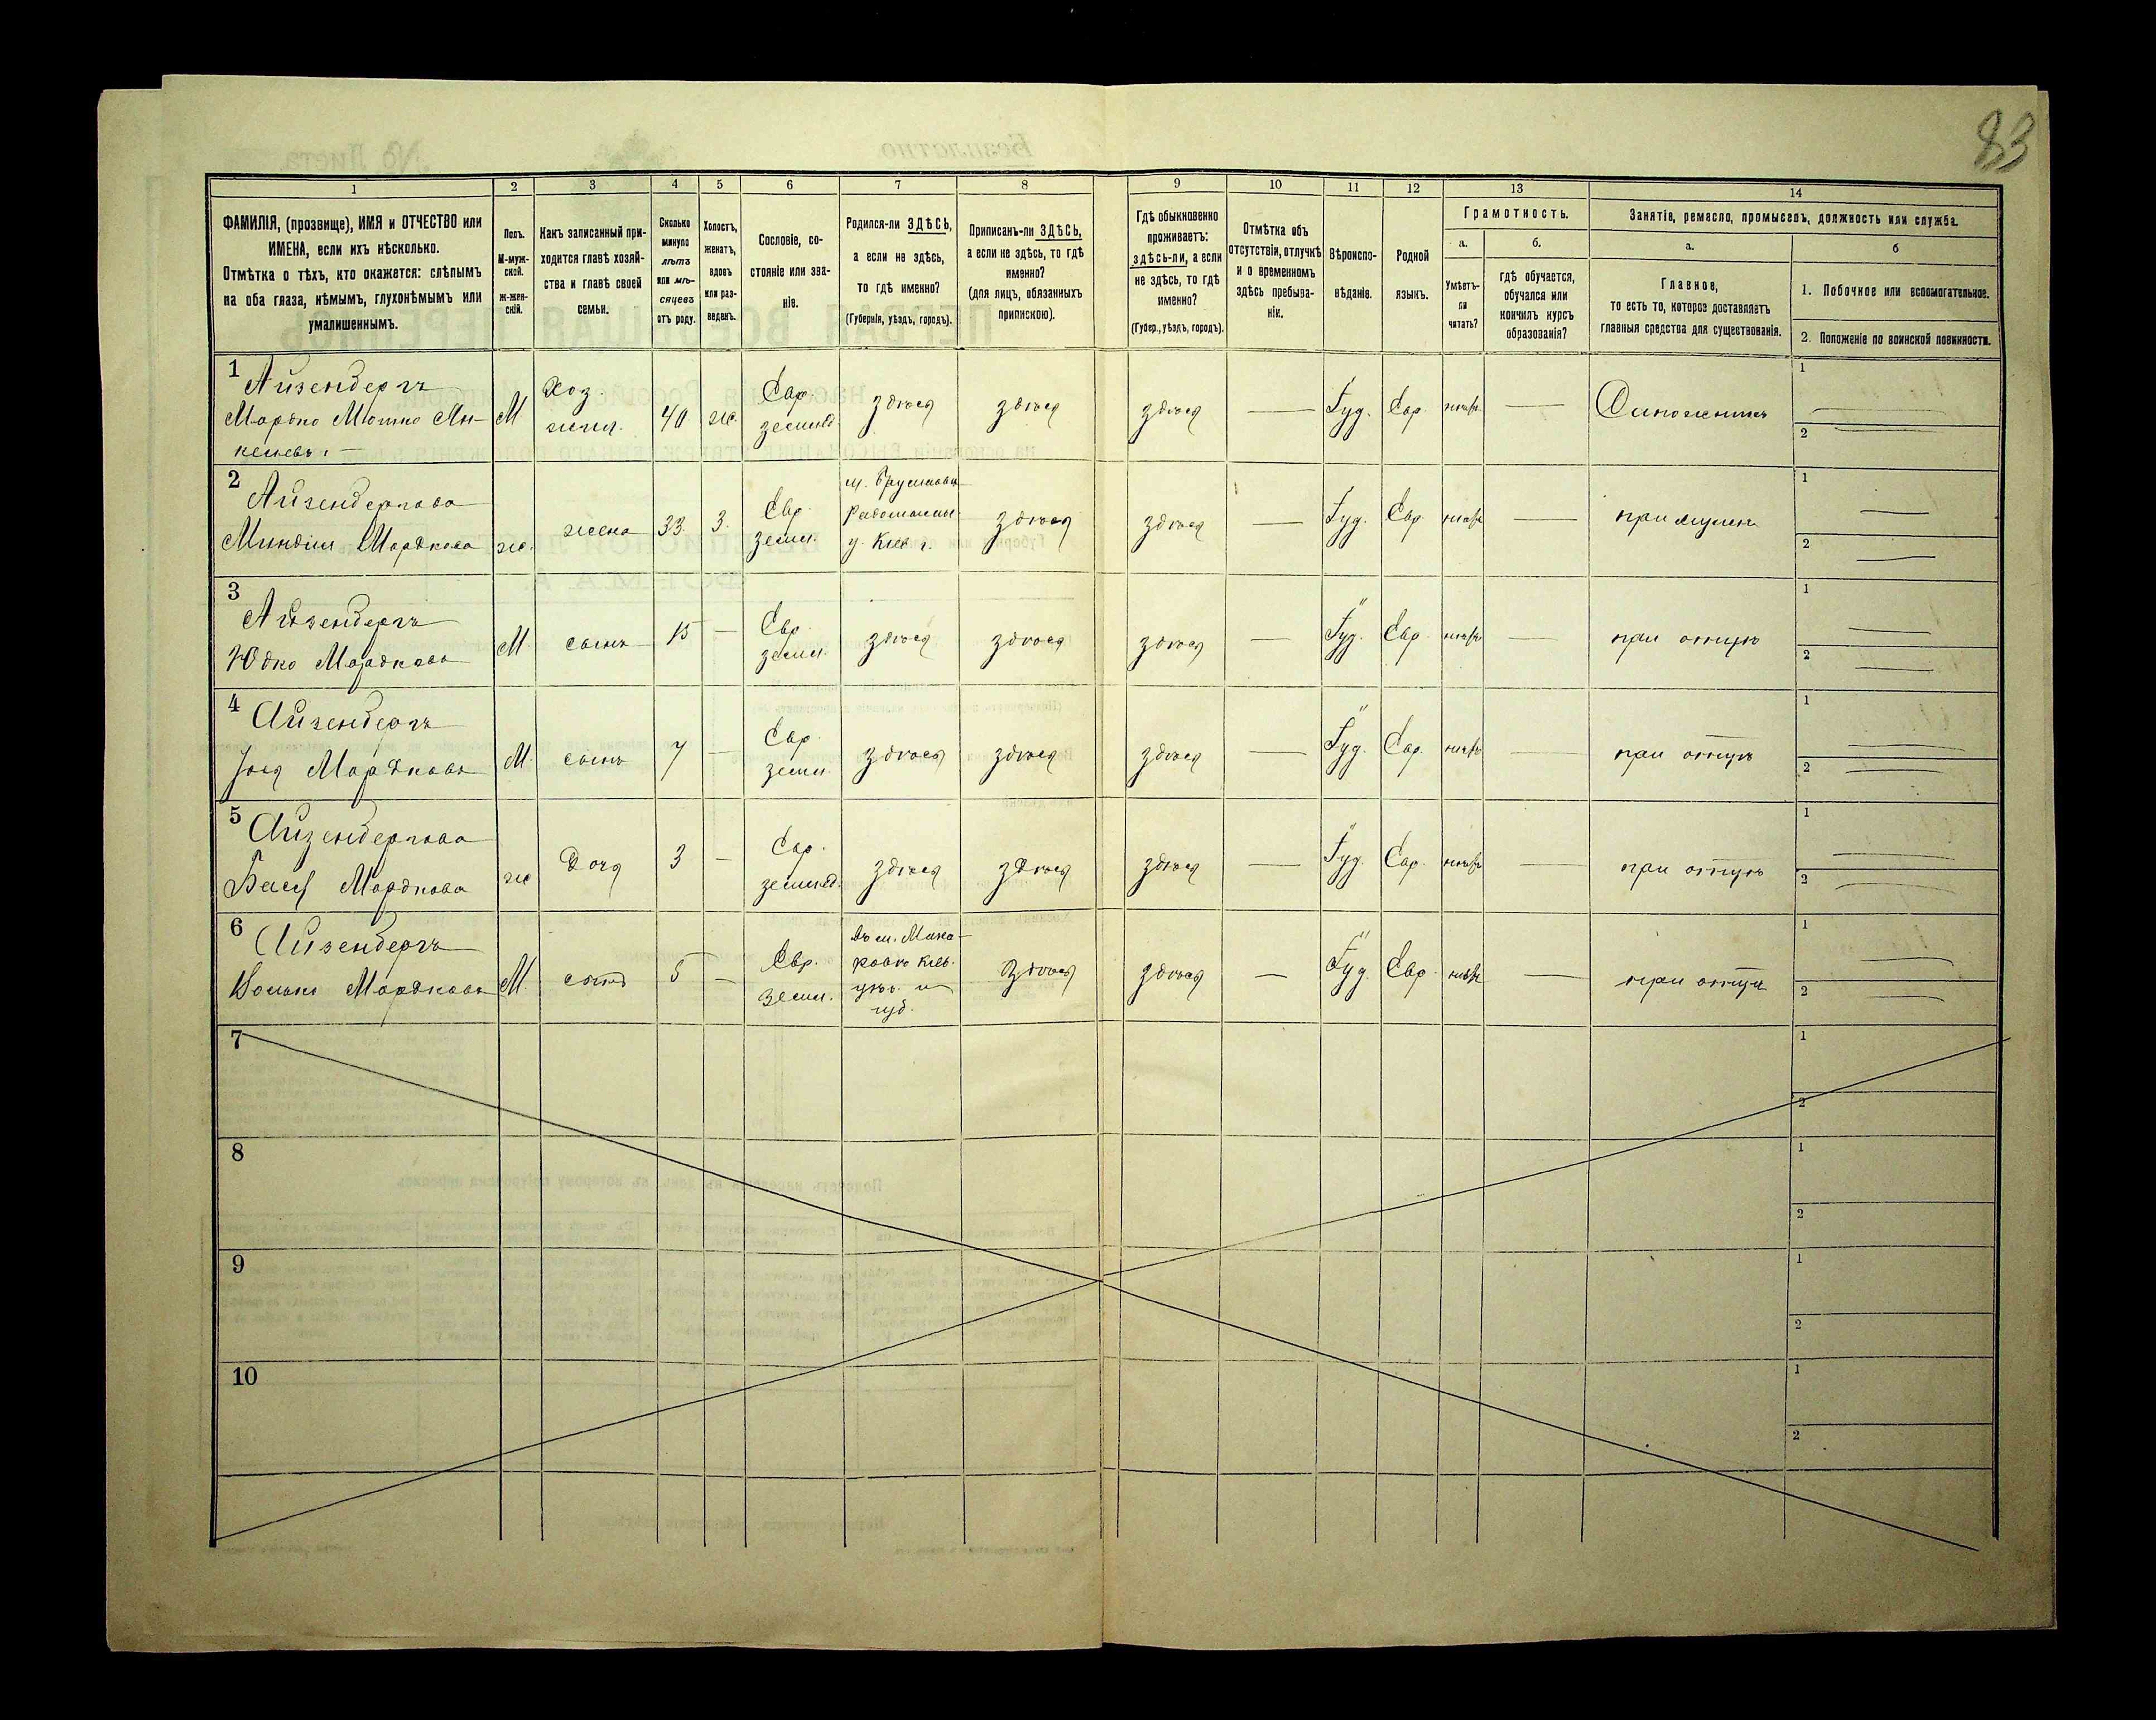 83
1 2 3 4 5 6 7 8 9 10 11 12 13 14
ФАМИЛІЯ, (прозвище), ИМЯ и ОТЧЕСТВО или
ИМЕНА, если ихъ нѣсколько.
Отмѣтка о тѣхъ, кто окажется: слѣпымъ
на оба глаза, нѣмымъ, глухонѣмымъ или
умалишеннымъ.
Полъ.
М-муж-
ской.
Ж-жен-
скій.
Какъ записанный при-
ходится главѣ хозяй-
ства и главѣ своей
семьи.
Сколько
минуло
лѣтъ
или мѣ-
сяцевъ
отъ роду.
Холостъ,
женатъ,
вдовъ
или раз-
веденъ.
Сословіе, со-
стояніе или зва-
ніе.
Родился-ли ЗДѢСЬ,
а если не здѣсь,
то гдѣ именно?
(Губернія, уѣздъ, городъ).
Приписанъ-ли ЗДѢСЬ,
а если не здѣсь, то гдѣ
именно?
(для лицъ, обязанныхъ
припискою).
Гдѣ обыкновенно
проживаетъ:
здѣсь-ли, а если
не здѣсь, то гдѣ
именно?
(Губер., уѣздъ, городъ).
Отмѣтка объ
отсутствіи, отлучкѣ
и о временномъ
здѣсь пребыва-
ніи.
Вѣроиспо-
вѣданіе.
Родной
языкъ.
Грамотность.
а.
Умѣетъ-
ли
читать?
б.
гдѣ обучается,
обучался или
кончилъ курсъ
образованія?
Занятіе, ремесло, промыселъ, должность или служба.
а.
Главное,
то есть то, которое доставляетъ
главныя средства для существованія.
б
1. Побочное или вспомогательное.
2. Положеніе по воинской повинности.
1 Айзенбергъ
Мордко Мошко Ян-
келевъ
М
Хоз.
40
ж.
Евр.
здѣсь
здѣсь
здѣсь
Іуд.
Евр.
Сапожникъ
1
2
2 Айзенбергова
Миндля Мордкова
ж.
жена
33
З.
Евр.
землед.
м. Брусиловъ
Радомысл.
у. Кіев г.
здѣсь
здѣсь
Іуд.
Евр.
при мужѣ
1
2
3 Айзенбергъ
Юдко Мордковъ
М
сынъ
15
Евр.
землед.
здѣсь
здѣсь
здѣсь
Іуд.
Евр.
при отцѣ
1
2
4 Айзенбергъ
Мордковъ
М
сынъ
7
Евр.
землед.
здѣсь
здѣсь
здѣсь
Іуд.
Евр.
при отцѣ
1
2
5 Айзенбергова
Бася Мордкова
ж
Дочь
3
Евр.
землед.
здѣсь
здѣсь
здѣсь
Іуд.
Евр.
при отцѣ
1
2
6 Айзенбергъ
Мордковъ
М.
сынъ
5
Евр.
землед.
въ м. Мака-
ровѣ Кіев.
уѣз. и
губ.
здѣсь
здѣсь
Іуд.
Евр.
при отцѣ
1
2
7
1
2
8
1
2
9
1
2
10
1
2